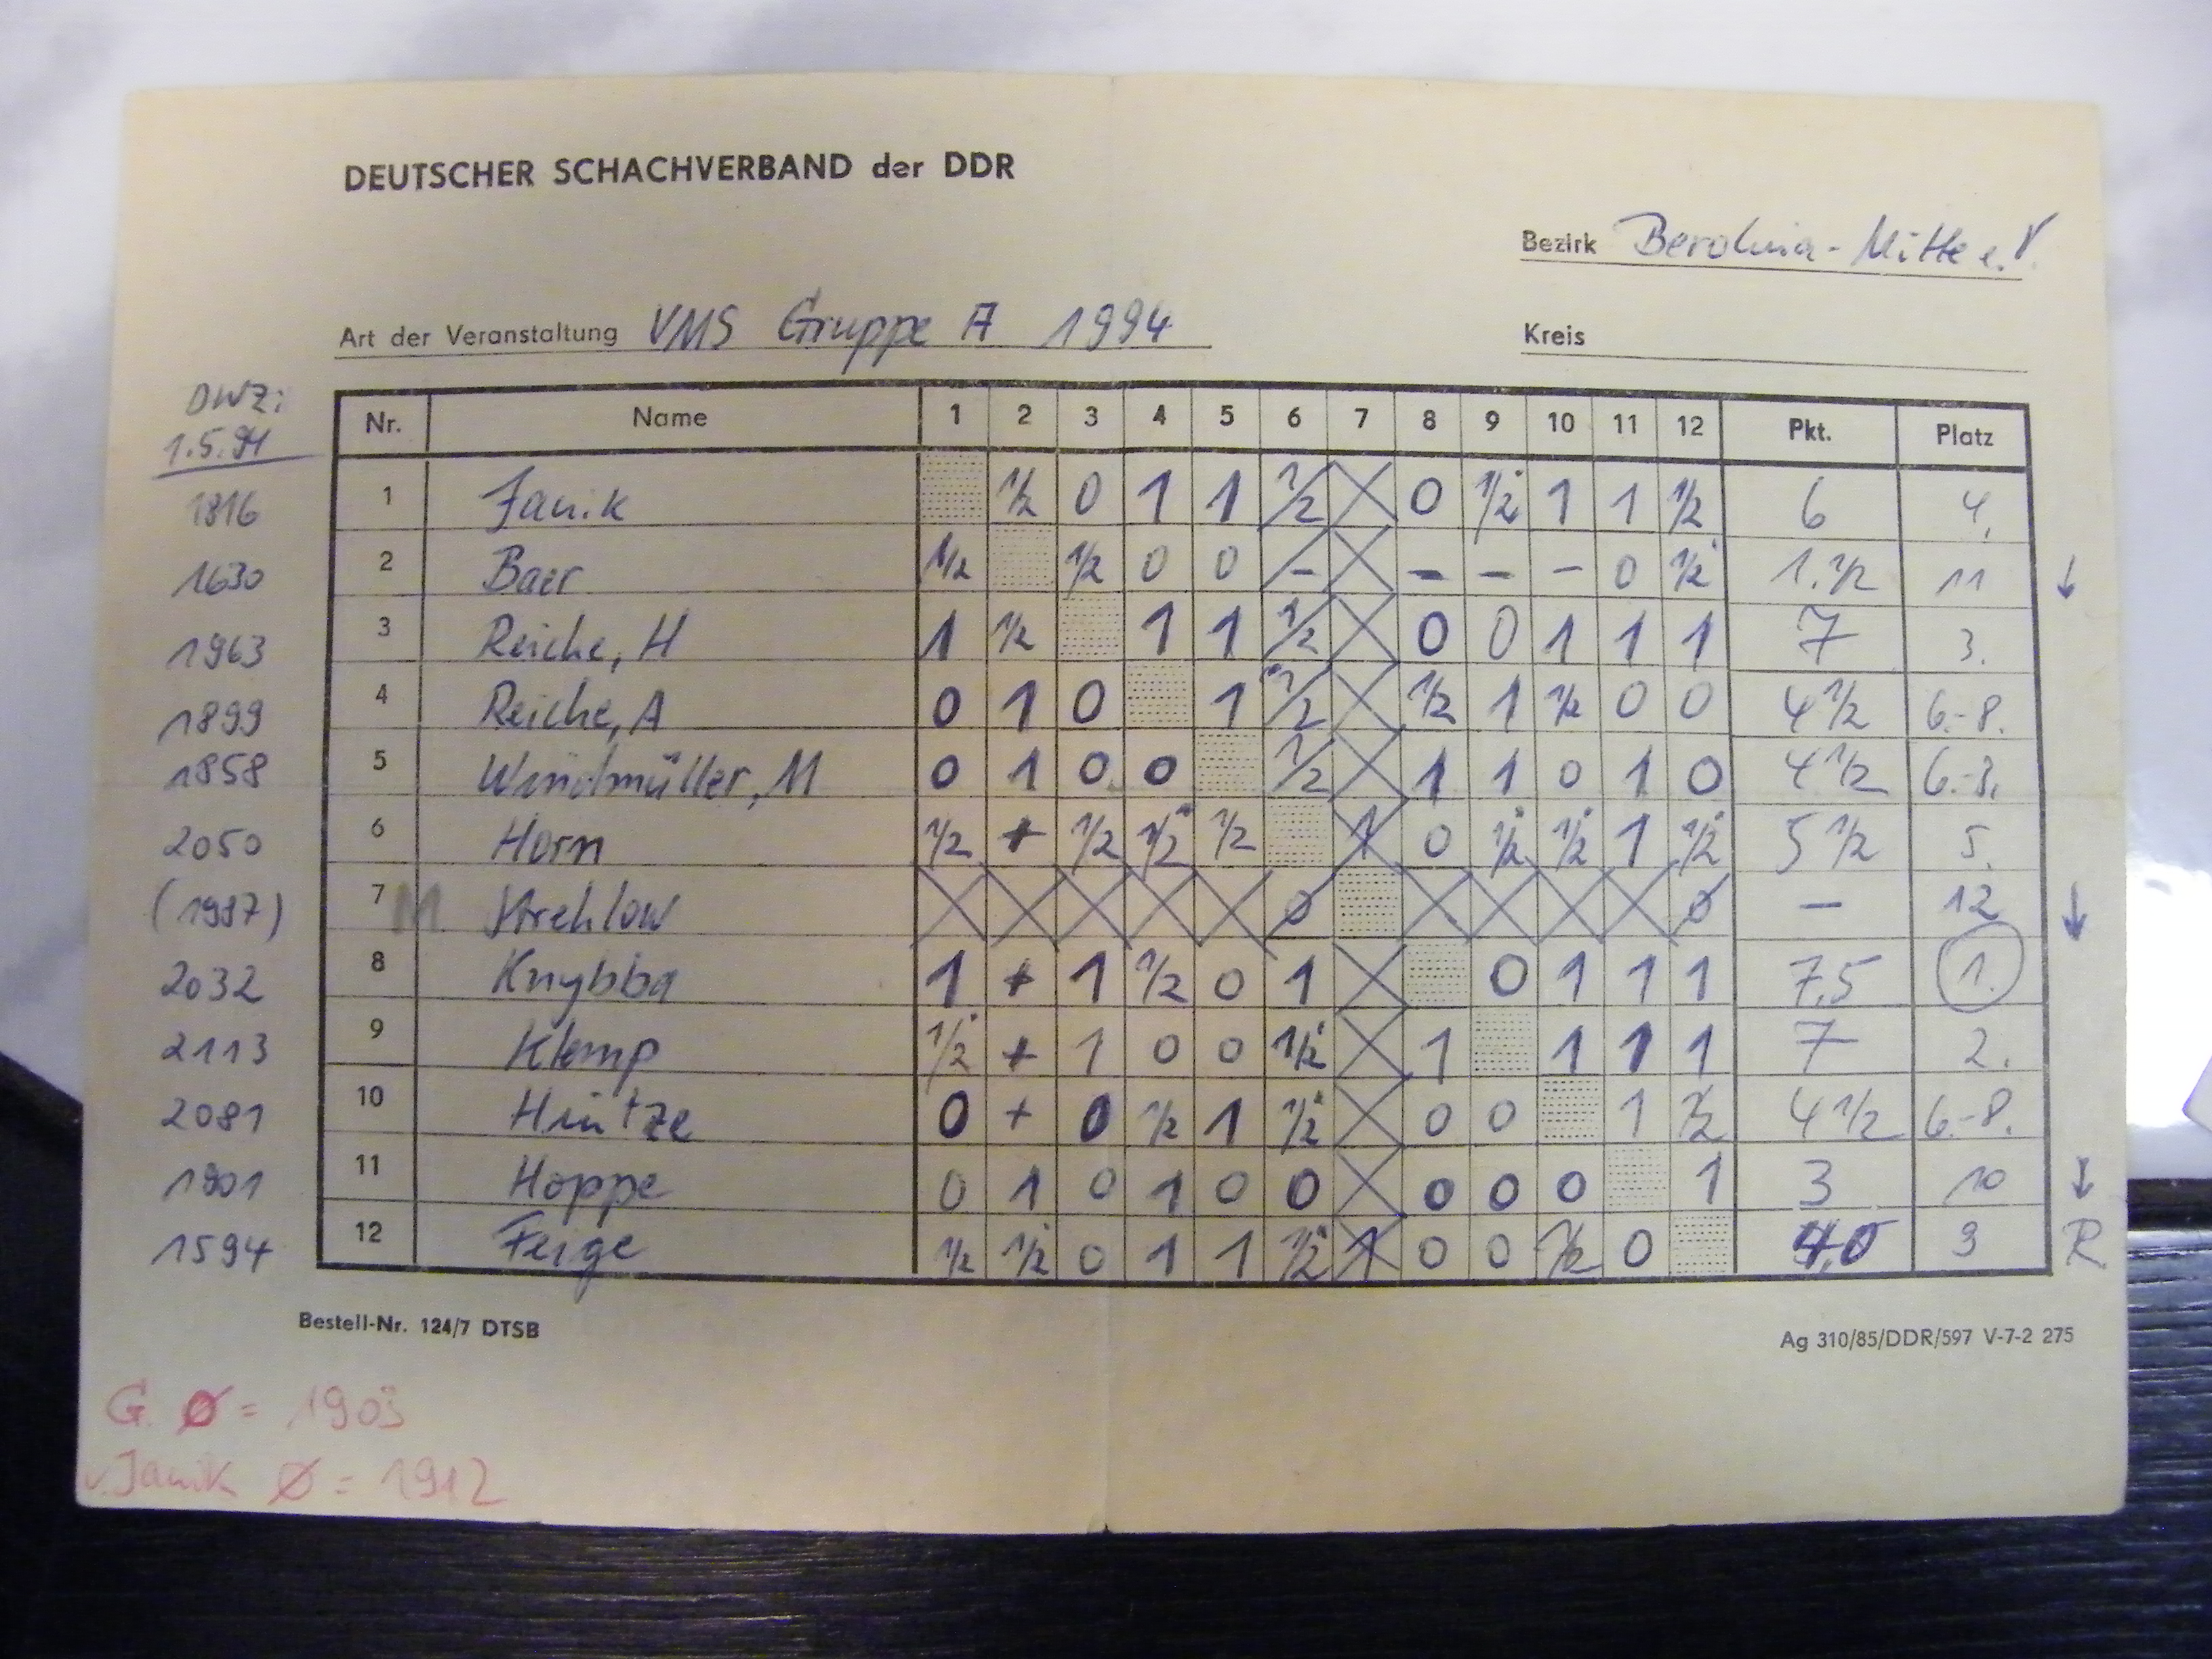 DEUTSCHER SCHACHVERBAND der DDR
Bezirk Berolina-Mitte e.V.
Art der Veranstaltung VMS Gruppe A 1994
Kreis
DWZ:
1.5.94
Nr. Name 1 2 3 4 5 6 7 8 9 10 11 12 Pkt. Platz
1816 1 Janik ½ 0 1 1 ½ X 0 ½ 1 1 ½ 6 4.
1630 2 Baer ½ ½ 0 0 – X – – – 0 ½ 1.½ 11 ↓
1963 3 Reiche, H 1 ½ 1 1 ½ X 0 0 1 1 1 7 3.
1899 4 Reiche, A 0 1 0 1 ½ X ½ 1 ½ 0 0 4½ 6.-8.
1858 5 Windmüller, M 0 1 0 0 ½ X 1 1 0 1 0 4½ 6.-8.
2050 6 Horn ½ + ½ ½ ½ 1 0 ½ ½ 1 ½ 5½ 5.
(1987) 7 M Strehlow X X X X X 0 X X X X 0 – 12 ↓
2032 8 Knybba 1 + 1 ½ 0 1 X 0 1 1 1 7,5 1.
2113 9 Klemp ½ + 1 0 0 ½ X 1 1 1 1 7 2.
2081 10 Hintze 0 + 0 ½ 1 ½ X 0 0 1 ½ 4½ 6.-8.
1901 11 Hoppe 0 1 0 1 0 0 X 0 0 0 1 3 10 ↓
1594 12 Feige ½ ½ 0 1 1 ½ 1 0 0 ½ 0 4,0 9 R
Bestell-Nr. 124/7 DTSB
Ag 310/85/DDR/597 V-7-2 275
G. Ø = 1903
v. Janik Ø = 1912